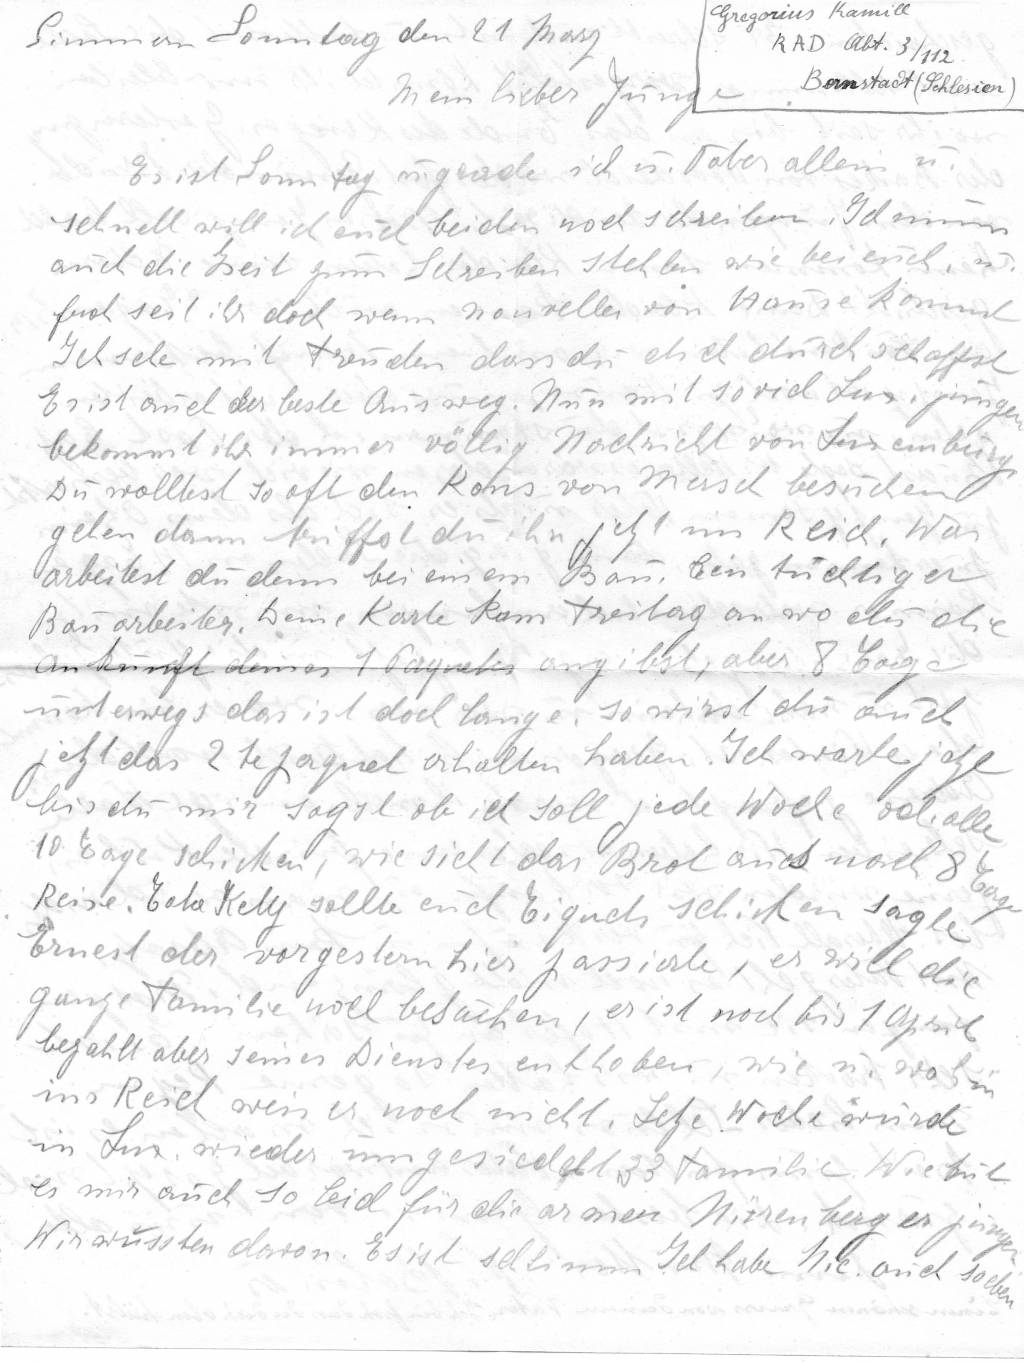 Gregorius Kamill
RAD Abt. 3/112
Bernstadt (Schlesien)
Simmern Sonntag den 21 März
Mein lieber Junge
Es ist Sonntag u grade ich u. Vater allein u.
schnell will ich euch beiden noch schreiben. Ich muss
auch die Zeit zum Schreiben stehlen wie bei euch, u.
froh seit ihr doch wenn nouvelles von Hause kommt
Ich sehe mit Freuden dass du dich durch schaffst
Es ist auch der beste Ausweg. Nun mit soviel Lux. jungen
bekommt ihr immer völlig Nachricht von Luxemburg
Du wolltest so oft den Kons von Mersch besuchen
gehen dann triffst du ihn jetzt im Reich. Was
arbeitest du denn bei einem Bau. Ein tüchtiger
Bauarbeiter. Deine Karte kam Freitag an wo du die
Ankunft deines 1 Paquetes angibst, aber 8 Tage
unterwegs das ist doch lange. so wirst du auch
jetzt das 2te paquet erhalten haben. Ich warte jetzt
bis du mir sagst ob ich soll jede Woche od. alle
10 Tage schicken, wie sieht das Brot aus nach 8 Tage
Reise. Tata Kety sollte euch schicken sagte
Ernest der vorgestern hier passierte, er will die
ganze Familie noch besuchen, er ist noch bis 1 April
bezahlt aber seines Dienstes enthoben, wie u. wohin
ins Reich weis er noch nicht. Letze Woche wurde
in Lux. wieder umgesiedelt 33 Familie. Wie tut
es mir auch so leid für die armen Nürenberger jungen
Wir wussten davon. Es ist schlimm Ich habe Nic. auch soeben